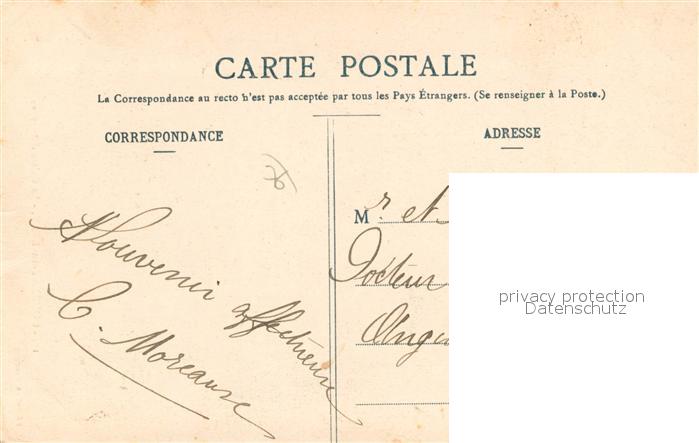 CARTE POSTALE
La Correspondance au recto n'est pas acceptée par tous les Pays Étrangers. (Se renseigner à la Poste.)
CORRESPONDANCE
Souvenir affectueux
C. Moreaux
ADRESSE
Mr et
Docteur
privacy protection
Datenschutz